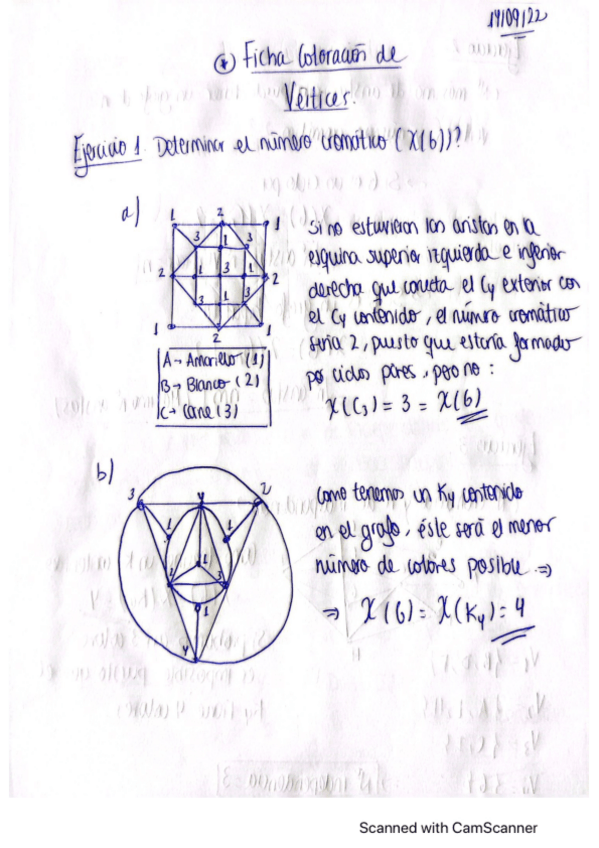 14/09/22
* Ficha Coloración de
Vértices.
Ejercicio 1. Determinar el número cromático (X(G))?
a)
1 2 1
3 1 3
2 1 3 1 2
3 1 3
1 2 1
Si no estuvieran las aristas en la
esquina superior izquierda e inferior
derecha que conecta el C4 exterior con
el C4 contenido, el número cromático
sería 2, puesto que estaría formado
por ciclos pares, pero no:
X(C3) = 3 = X(G)
A → Amarillo (1)
B → Blanco (2)
C → Carne (3)
b)
3 4 2
1 1
1
1 3
1
4
Como tenemos un K4 contenido
en el grafo, éste será el menor
número de colores posible ⇒
⇒ X(G) = X(K4) = 4
Scanned with CamScanner